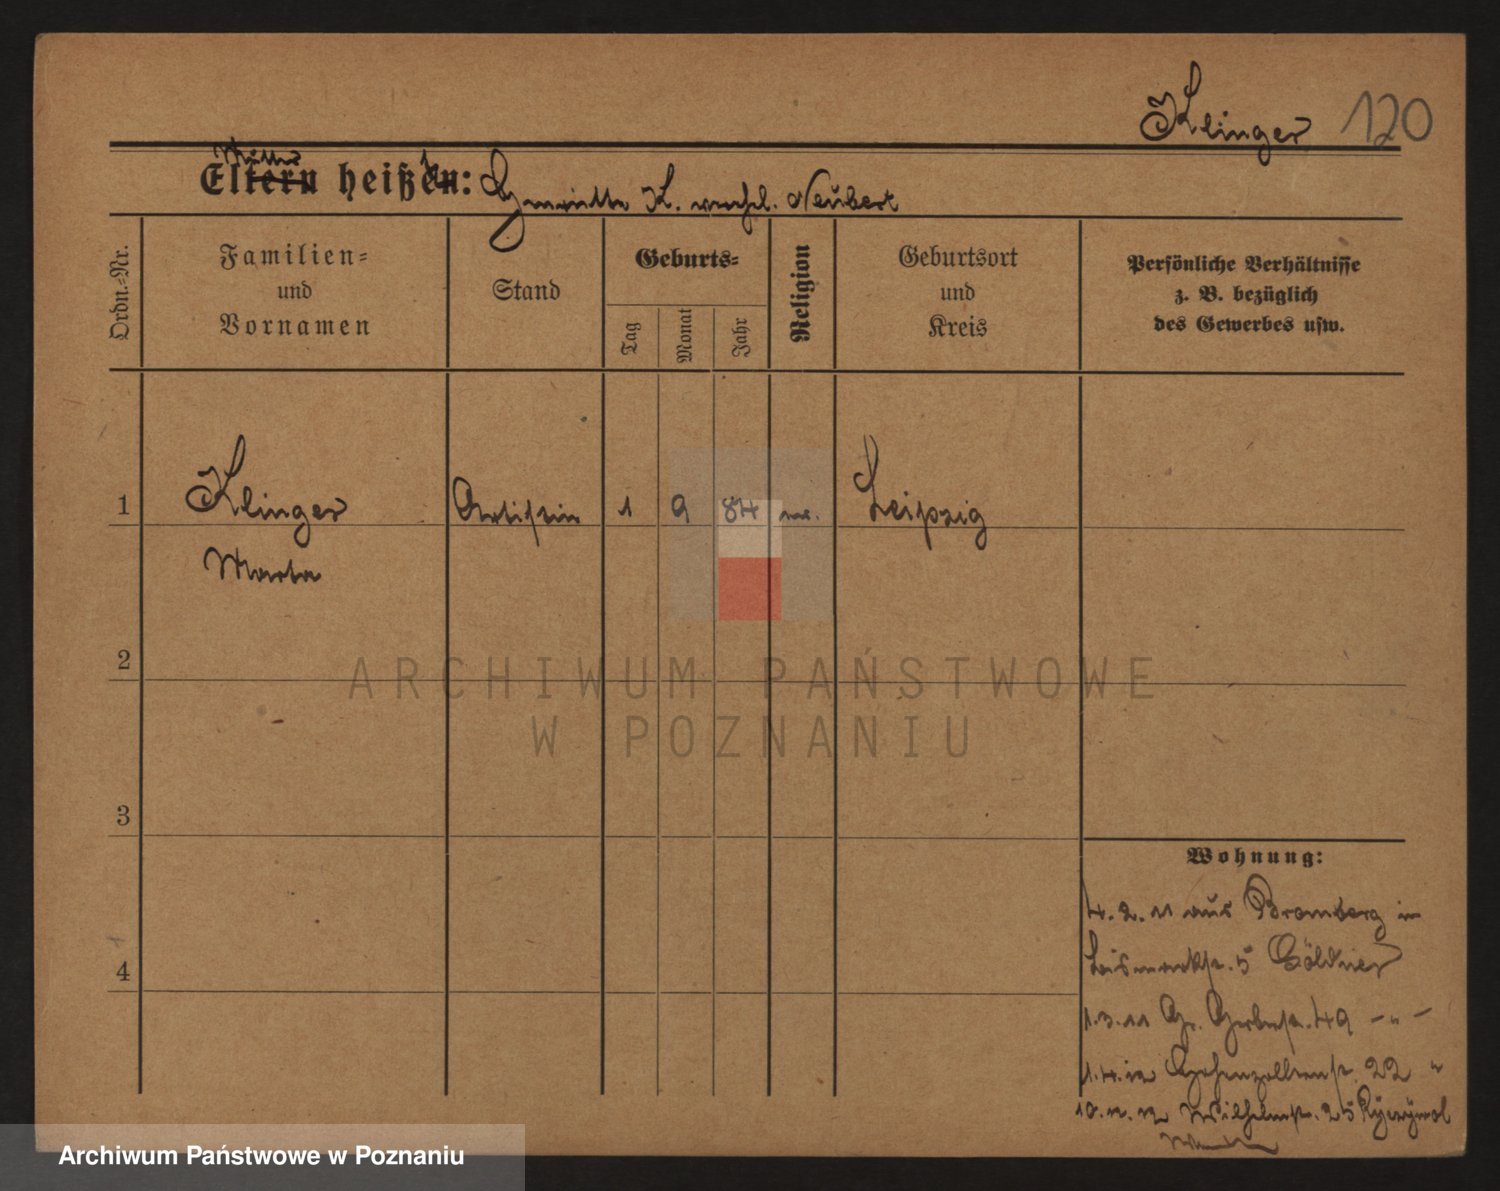 Klinger 120
Mutter
Eltern heißen: Henriette K. verehl. Neubert
Ordn.-Nr.
Familien-
und
Vornamen
Stand
Geburts-
Tag
Monat
Jahr
Religion
Geburtsort
und
Kreis
Persönliche Verhältnisse
z. B. bezüglich
des Gewerbes usw.
1 Klinger Artistin 1 9 84 Leipzig
Marta
2
ARCHIWUM PAŃSTWOWE
W POZNANIU
3
4
Wohnung:
4. 2. 11 aus Bromberg in
Bismarckstr. 5 Göldner
1. 3. 11 Gr. Gerberstr. 49 - " -
1. 4. 12 Hohenzollernstr. 22 "
10. 12 Wilhelmstr. 25
Archiwum Państwowe w Poznaniu